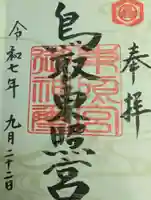 奉拝
鳥取東照宮
令和七年 九月二十二日